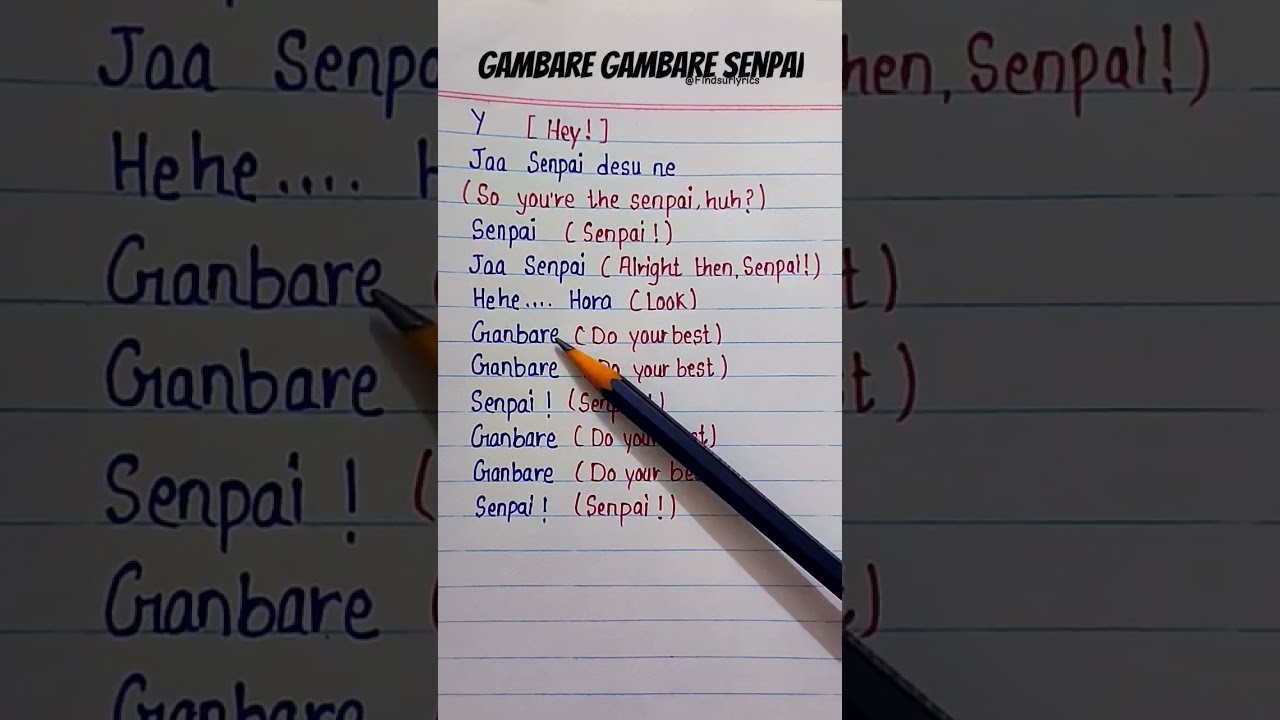 GAMBARE GAMBARE SENPAI
@Findsurlyrics
Y [Hey!]
Jaa Senpai desu ne
(So you're the senpai, huh?)
Senpai (Senpai!)
Jaa Senpai (Alright then, Senpai!)
Hehe.... Hora (Look)
Ganbare (Do your best)
Ganbare (Do your best)
Senpai! (Sen
Ganbare (Do you
Ganbare (Do your be
Senpai! (Senpai!)